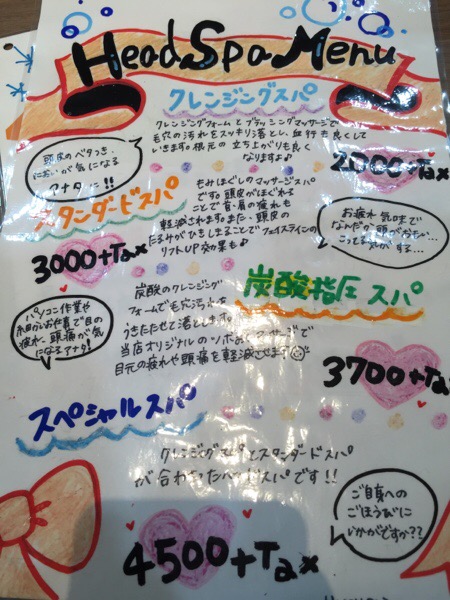 Head Spa Menu
クレンジングスパ
クレンジングフォームとブラッシングマッサージで
毛穴の汚れをスッキリ落とし、血行も良くして
いきます。根元の立ち上がりも良く
なりますよ♪
頭皮のベタつき、
においが気になる
アナタに!!
+Tax
スタンダードスパ
もみほぐしのマッサージスパ
です。頭皮がほぐれる
ことで首・肩の疲れも
軽減されます。また、頭皮の
たるみがひきしまることでフェイスラインの
リフトUP効果も♪
3000+Tax
お疲れ気味で
なんだか頭がおもたい…
こってる気がする…
炭酸指圧スパ
炭酸のクレンジング
フォームで毛穴汚れを
うきたたせて落とします。
当店オリジナルのツボ押しマッサージで
目元の疲れや頭痛を軽減させます
パソコン作業や
細かいお仕事で目の
疲れ、頭痛が気
になるアナタ!
3700+Tax
スペシャルスパ
クレンジングスパとスタンダードスパ
が合わさったヘッドスパです!!
ご自身への
ごほうびに
いかがですか??
4500+Tax